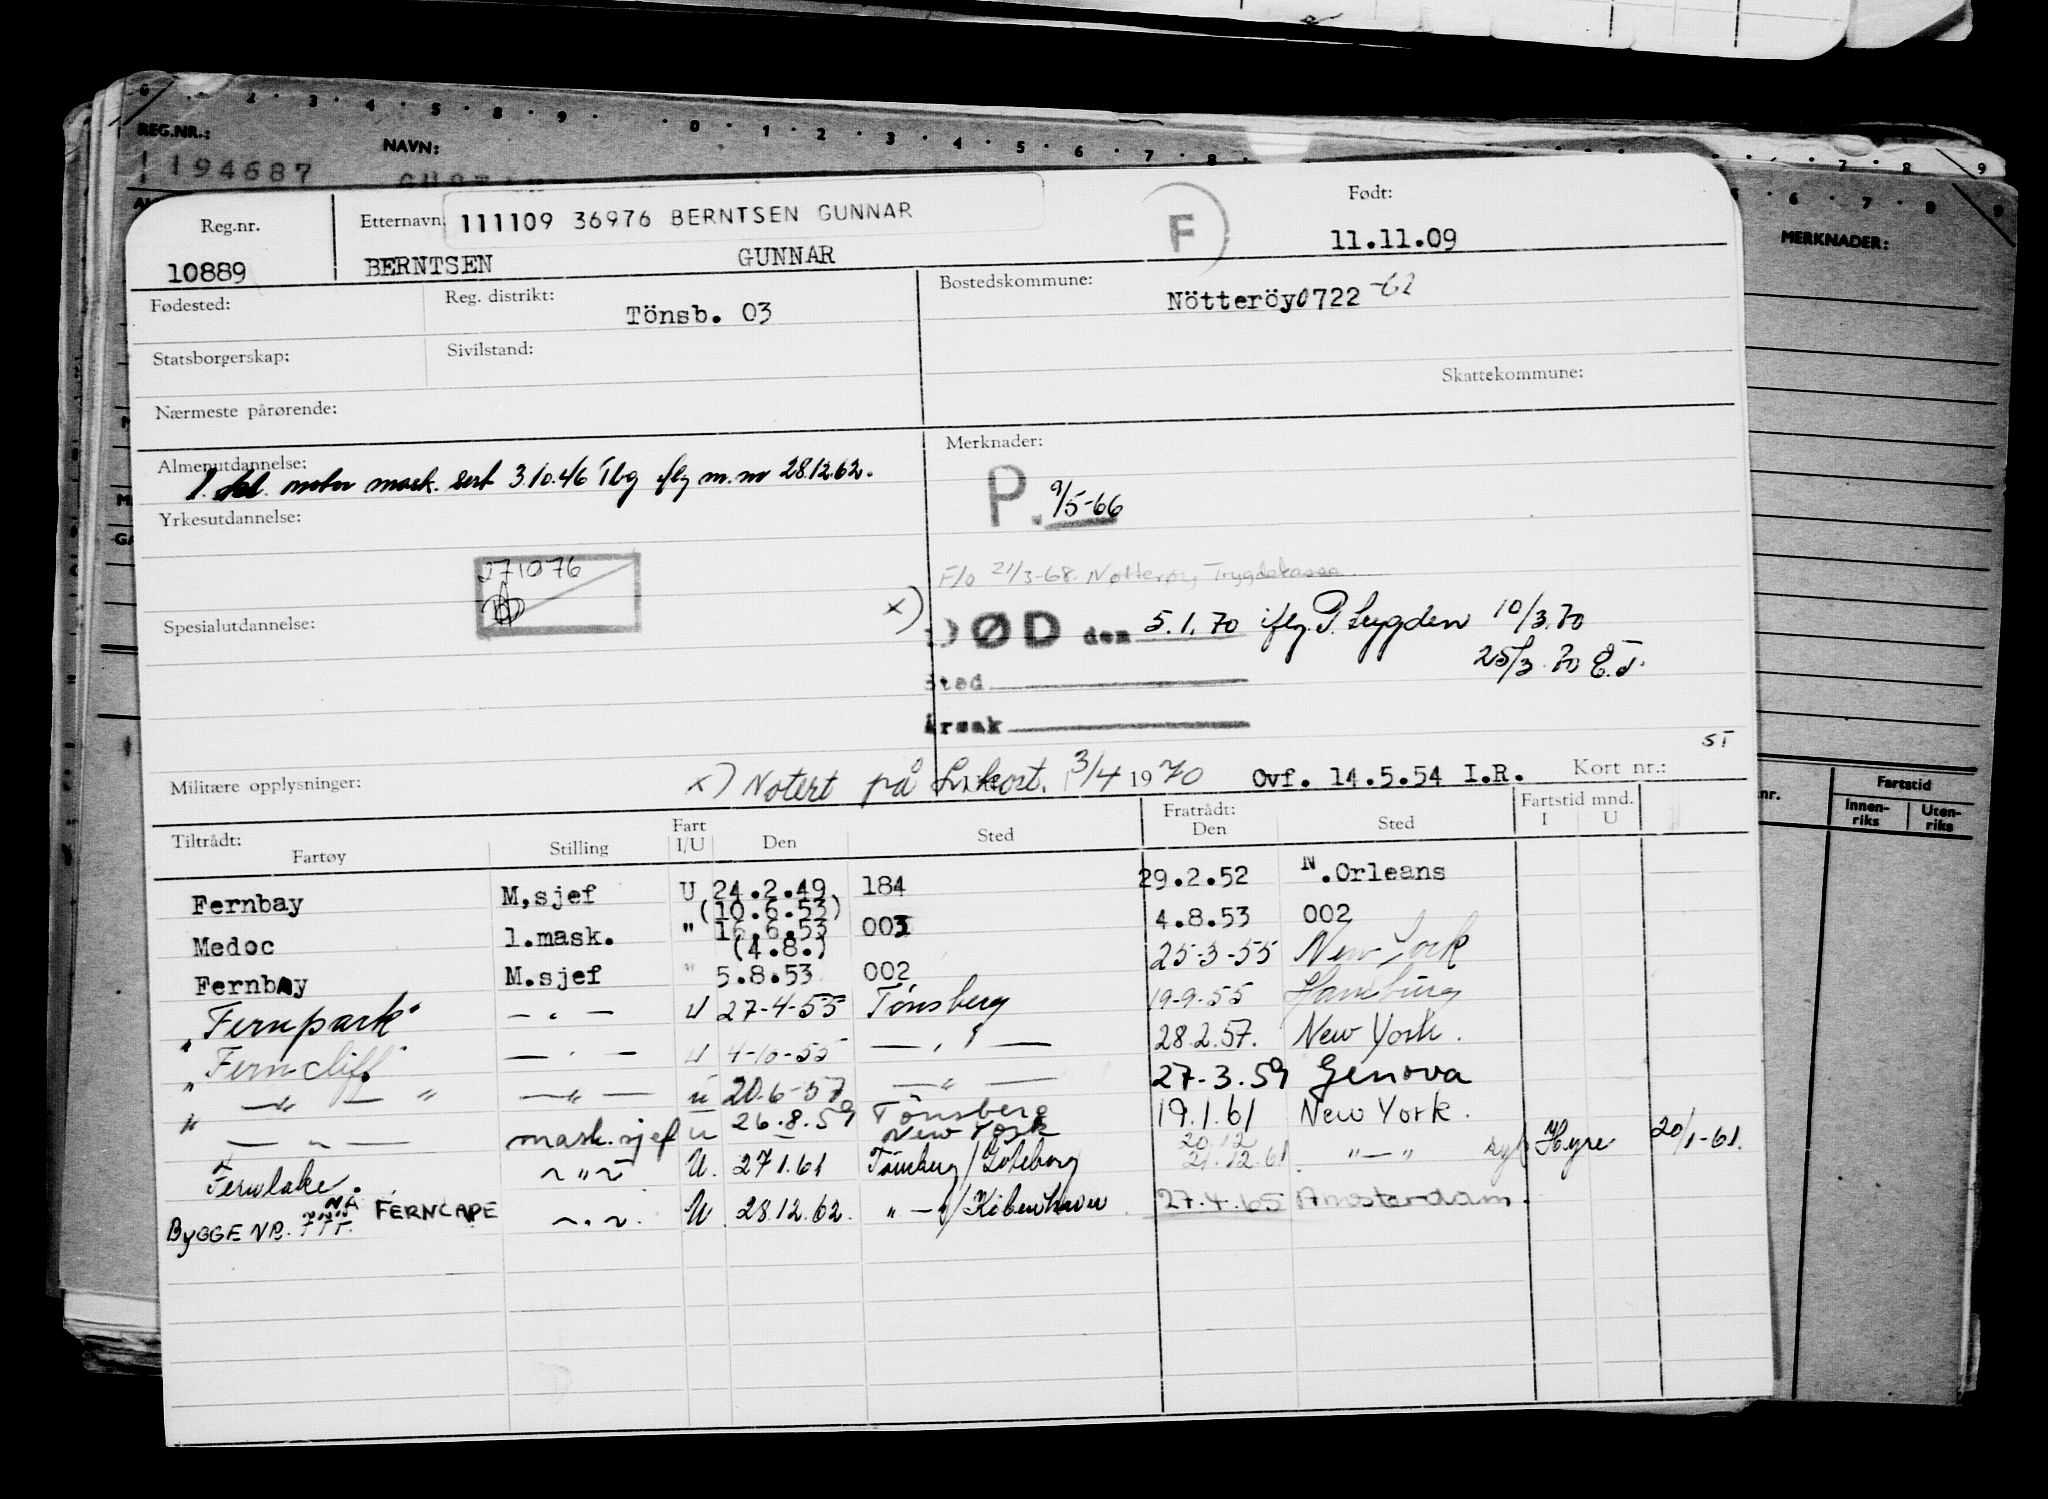 6 . 2 . 3 . 4 . 5 . 8 . 9 . 0 . 1 . 2 . 3 . 4 . 5 . 6 . 7 . 8
7 . 8 9
5 . 6 . 7 . 8 9
REG.NR.: NAVN:
194687
MERKNADER:
Reg.nr. Etternavn 111109 36976 BERNTSEN GUNNAR F Født:
10889 BERNTSEN GUNNAR 11.11.09
Fødested: Reg. distrikt: Tönsb. 03 Bostedskommune: Nötteröy 0722 -62
Statsborgerskap: Sivilstand:
Skattekommune:
Nærmeste pårørende:
Almenutdannelse: Merknader:
1. kl. motor mask. sert 3.10.46 Tbg iflg m.nr 28.12.62.
P. 9/5-66
Yrkesutdannelse:
271076
F/o 21/3-68. Nøtterøy Trygdekasse
Spesialutdannelse:
x) DØD den 5.1.70 iflg. P. trygden 10/3.70
25/3.70 E.T.
Sted
Årsak
ST
Militære opplysninger: x) Notert på L.kort. 3/4 1970 Ovf. 14.5.54 I.R. Kort nr.:
Tiltrådt: Fartøy Stilling Fart I/U Den Sted Fratrådt: Den Sted Fartstid mnd. I U
nr. Fartstid
Innenriks Utenriks
Fernbay M,sjef U 24.2.49 184 29.2.52 N.Orleans
(10.6.53)
Medoc 1.mask. " 16.6.53 003 4.8.53 002
(4.8.)
Fernbay M.sjef " 5.8.53 002 25-3-55 New York
"Fernpark" — " — U 27-4-55 Tønsberg 19-9-55 Hamburg
"Ferncliff" — " — U 4-10-55 — " — 28.2.57. New York.
" — " — " — " — u 20.6-57 — " — 27.3.59 Genova
— " — mask.sjef u 26.8.59 Tønsberg New York 19.1.61 New York.
Fernlake. ~ " ~ U. 27.1.61 Tønsberg/Göteborg 20.12 21.12.61. " — " Hyre 20/1-61.
BYGGE NR. 777. NÅ FERNCAPE ~ " ~ U 28.12.62. " — " /København 27.4.65 Amsterdam.